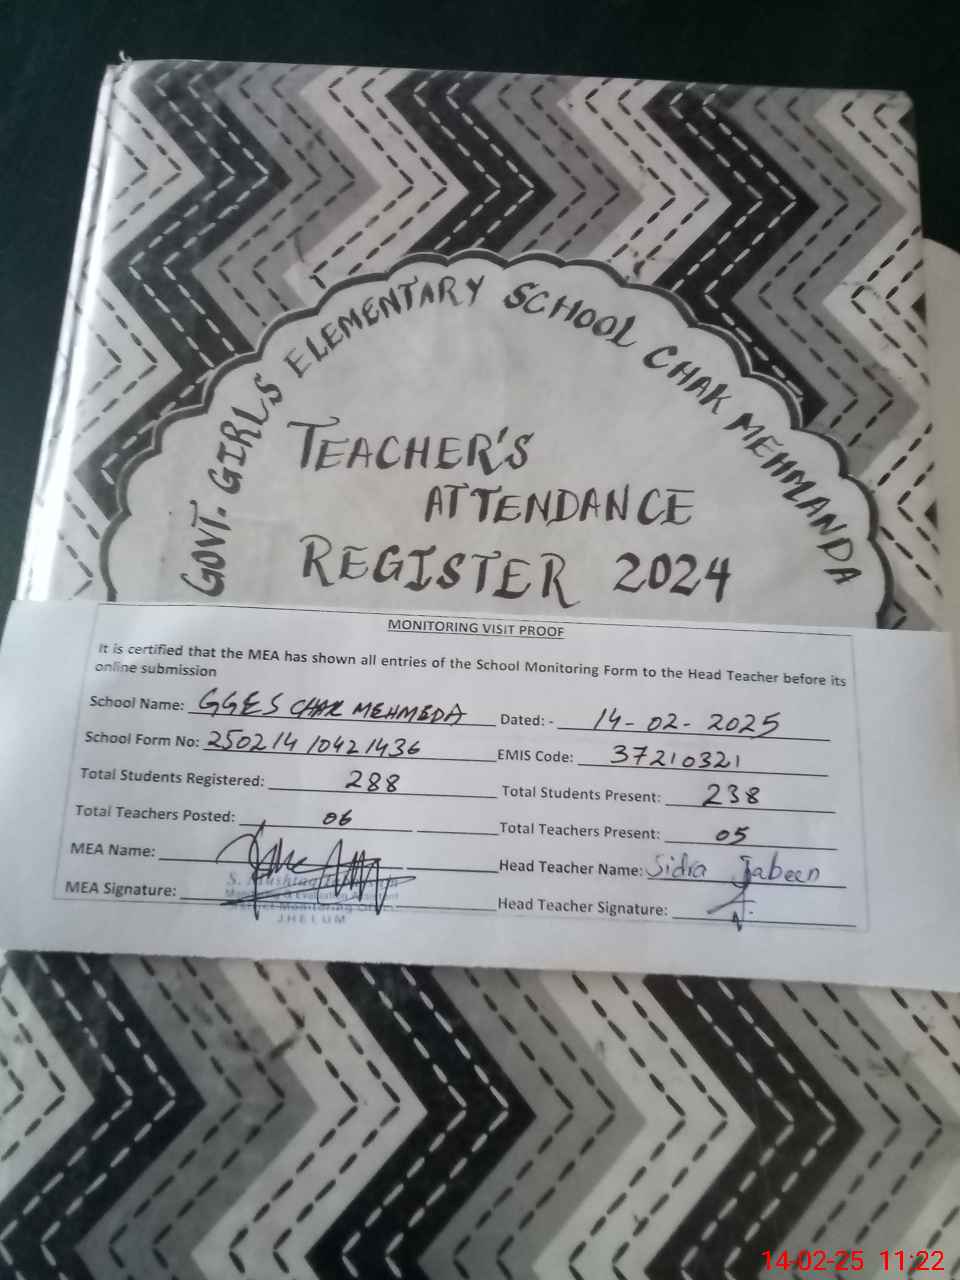 GOVT. GIRLS ELEMENTARY SCHOOL CHAK MEHMANDA
TEACHER'S
ATTENDANCE
REGISTER 2024
MONITORING VISIT PROOF
It is certified that the MEA has shown all entries of the School Monitoring Form to the Head Teacher before its
online submission
School Name: GGES CHAK MEHMEDA Dated: - 14-02-2025
School Form No: 250214 10421436 EMIS Code: 37210321
Total Students Registered: 288 Total Students Present: 238
Total Teachers Posted: 06 Total Teachers Present: 05
MEA Name: Head Teacher Name: Sidra Jabeen
MEA Signature: Head Teacher Signature:
JHELUM
14-02-25 11:22